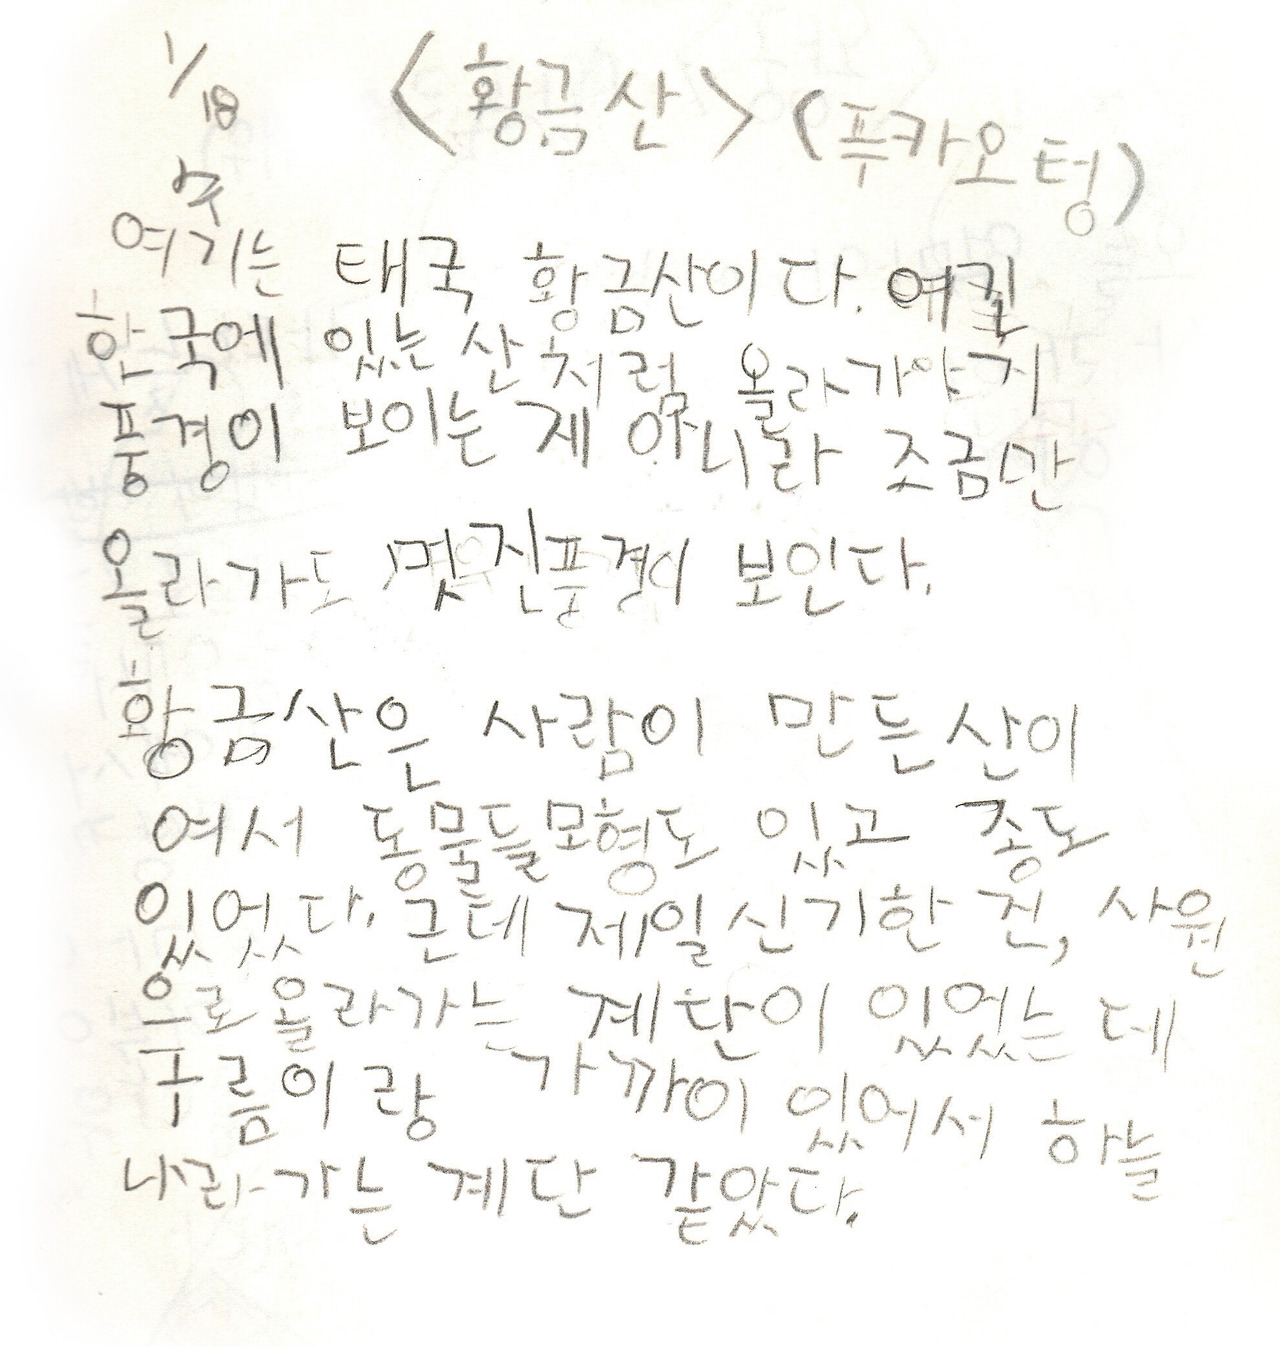 1/18
수
<황금산> (푸카오텅)
여기는 태국 황금산이다. 여긴
한국에 있는 산처럼 올라가야지
풍경이 보이는 게 아니라 조금만
올라가도 멋진풍경이 보인다.
황금산은 사람이 만든산이
여서 동물들모형도 있고 종도
있었다. 근데 제일신기한 건, 사원
으로올라가는 계단이 있었는데
구름이랑 가까이 있어서 하늘
나라가는 계단 같았다.